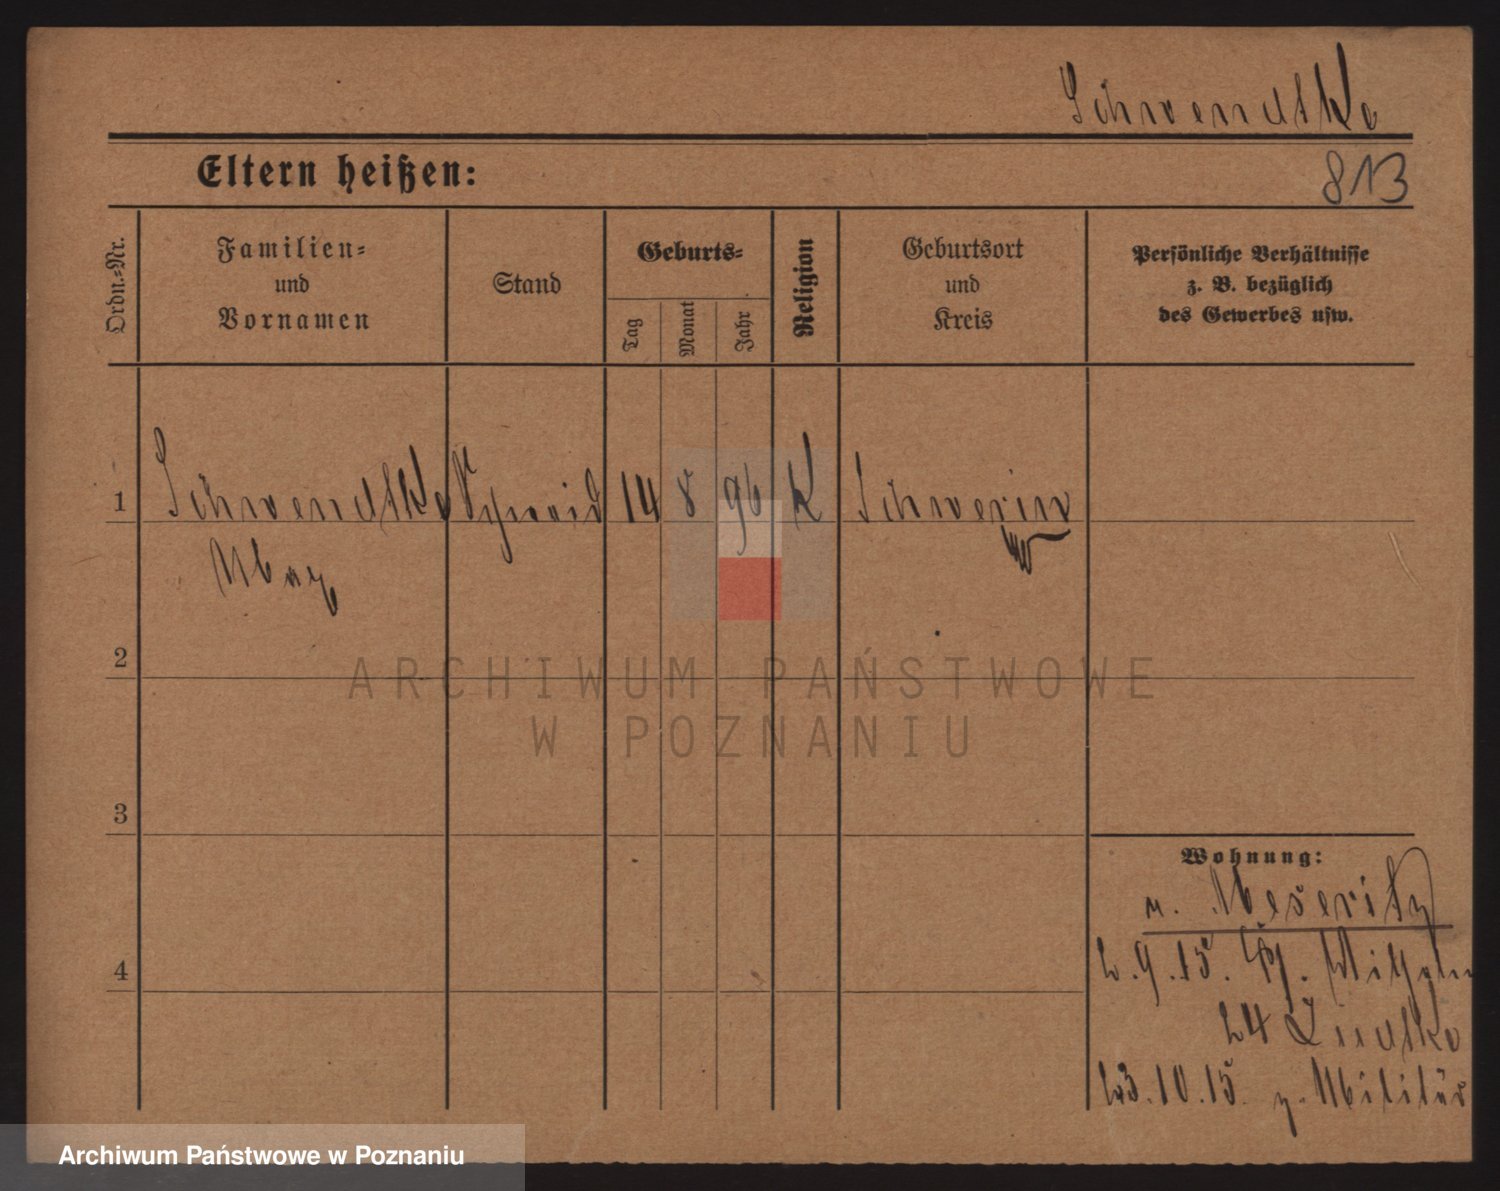 Schwendtke
Eltern heißen:
813
Ordn.-Nr.
Familien-
und
Vornamen
Stand
Geburts-
Tag
Monat
Jahr
Religion
Geburtsort
und
Kreis
Persönliche Verhältnisse
z. B. bezüglich
des Gewerbes usw.
1
Schwendtke
Schmid
14
8
96
K
Schwerin
Max
2
ARCHIWUM PAŃSTWOWE
W POZNANIU
3
Wohnung:
n. Meseritz
2.9.15. Wilhelm
24
23.10.15. z. Militär
4
Archiwum Państwowe w Poznaniu